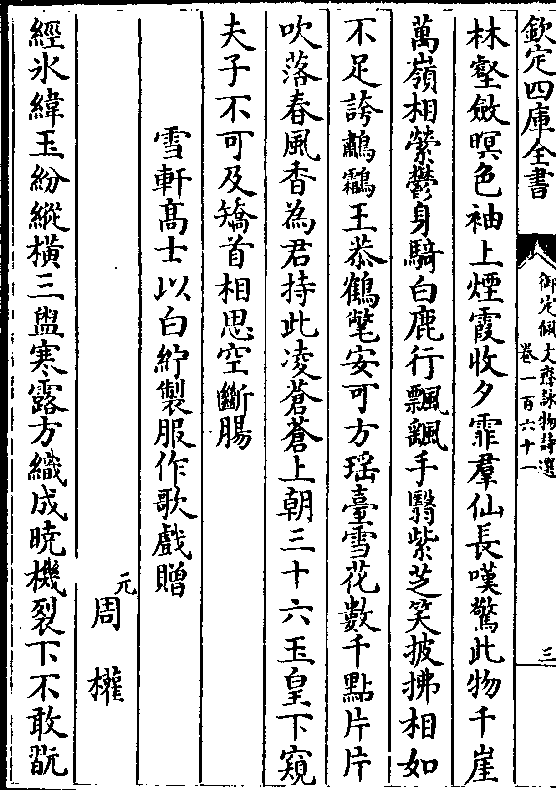 欽定四庫全書
御定佩文齋詠物詩選
卷一百六十一
三
林壑斂暝色袖上煙霞收夕霏羣仙長嘆驚此物千崖
萬嶺相縈鬱身騎白鹿行飄飖手翳紫芝笑披拂相如
不足誇鷫鸘王恭鶴氅安可方瑶臺雪花數千點片片
吹落春風香為君持此凌蒼蒼上朝三十六玉皇下窺
夫子不可及矯首相思空斷腸
雪軒高士以白紵製服作歌戲贈
元周權
經氷緯玉紛縱橫三盥寒露方織成曉機裂下不敢翫